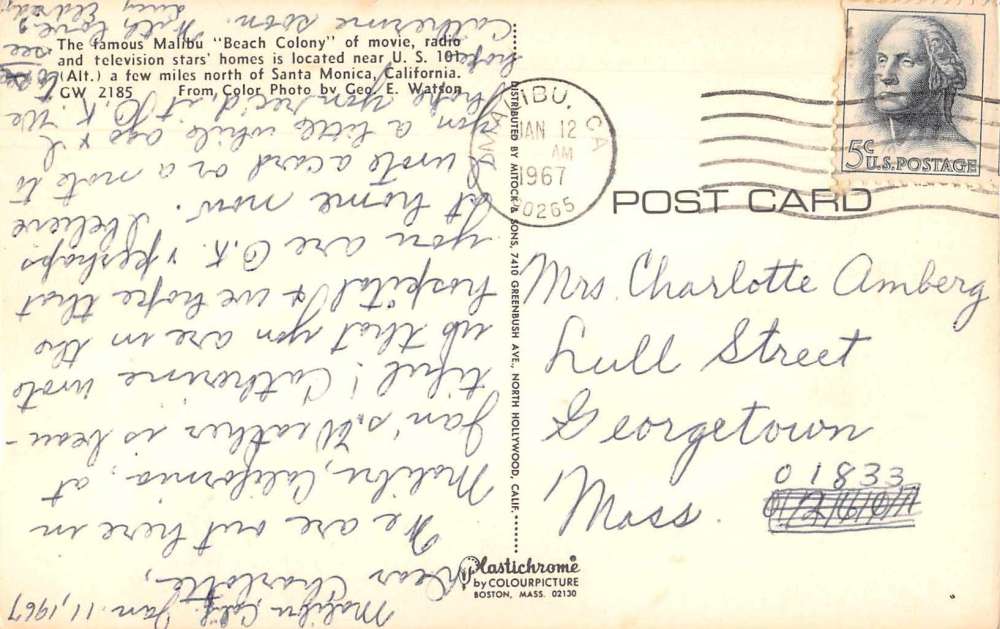 The famous Malibu "Beach Colony" of movie, radio
and television stars' homes is located near U. S. 101
(Alt.) a few miles north of Santa Monica, California.
GW 2185 From Color Photo by Geo. E. Watson
Malibu, Calif. Jan. 11, 1967
Dear Charlotte,
We are out here in
Malibu, California, at
Jan's. Weather is beau-
tiful! Catherine wrote
us that you are in the
hospital & we hope that
you are O.K. & perhaps
at home now. I believe
I wrote a card or a note to
you a little while ago & I
hope you rec'd it O.K. We
hope to see
Catherine soon. With love,
DISTRIBUTED BY MITOCK & SONS, 7410 GREENBUSH AVE., NORTH HOLLYWOOD, CALIF.
MALIBU, CA
JAN 12
AM
1967
90265
5c U.S. POSTAGE
POST CARD
Mrs. Charlotte Amberg
Lull Street
Georgetown
Mass. 01833
Plastichrome®
by COLOURPICTURE
BOSTON, MASS. 02130